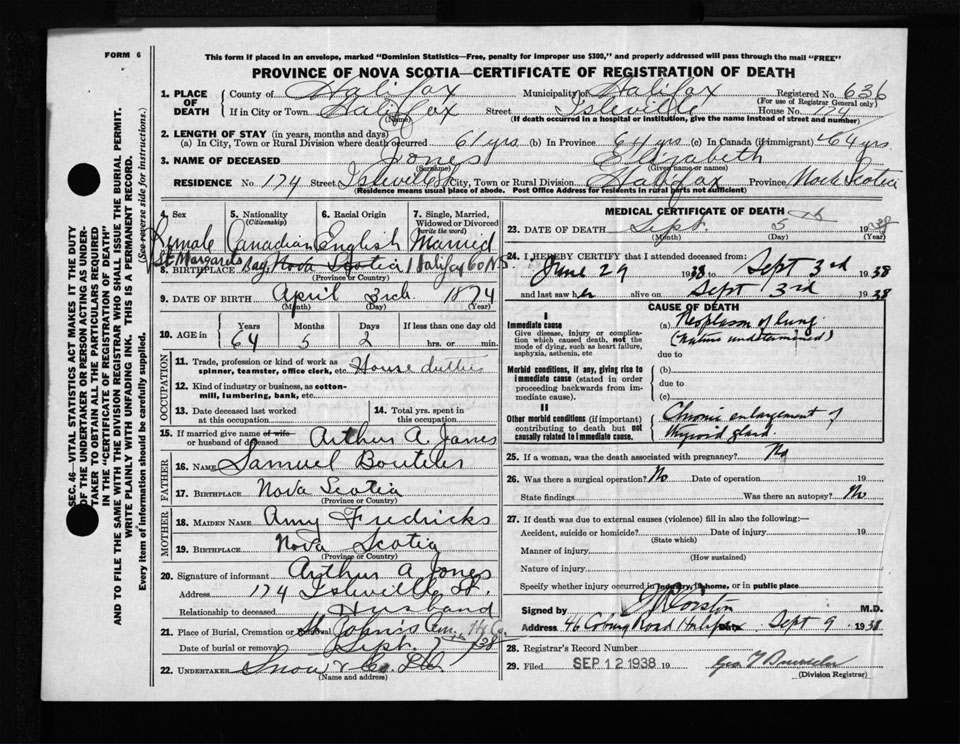 FORM 6
This form if placed in an envelope, marked "Dominion Statistics—Free, penalty for improper use $300," and properly addressed will pass through the mail "FREE"
PROVINCE OF NOVA SCOTIA—CERTIFICATE OF REGISTRATION OF DEATH
SEC. 46—VITAL STATISTICS ACT MAKES IT THE DUTY
OF THE UNDERTAKER OR PERSON ACTING AS UNDER-
TAKER TO OBTAIN ALL THE PARTICULARS REQUIRED
IN THE "CERTIFICATE OF REGISTRATION OF DEATH"
AND TO FILE THE SAME WITH THE DIVISION REGISTRAR WHO SHALL ISSUE THE BURIAL PERMIT.
WRITE PLAINLY WITH UNFADING INK. THIS IS A PERMANENT RECORD.
Every item of information should be carefully supplied. (See reverse side for instructions.)
1. PLACE OF DEATH
County of Halifax Municipality of Halifax Registered No. 636
(For use of Registrar General only)
If in City or Town Halifax Street Isleville House No. 174
(Name) (If death occurred in a hospital or institution, give the name instead of street and number)
2. LENGTH OF STAY (in years, months and days)
(a) In City, Town or Rural Division where death occurred 61 yrs. (b) In Province 64 yrs (c) In Canada (if immigrant) 64 yrs
3. NAME OF DECEASED Jones Elizabeth
(Surname) (Given name or names)
RESIDENCE No. 174 Street Isleville St City, Town or Rural Division Halifax Province Nova Scotia
(Residence means usual place of abode. Post Office Address for residents in rural parts not sufficient)
4. Sex 5. Nationality (Citizenship) 6. Racial Origin 7. Single, Married, Widowed or Divorced (write the word)
Female Canadian English Married
St Margarets
8. BIRTHPLACE Bay Nova Scotia Halifax Co N.S.
(Province or Country)
9. DATE OF BIRTH April 3rd 1874
(Month) (Day) (Year)
10. AGE in Years Months Days If less than one day
64 5 2 hrs. or min.
OCCUPATION
11. Trade, profession or kind of work as spinner, teamster, office clerk, etc. House duties
12. Kind of industry or business, as cotton-mill, lumbering, bank, etc.
13. Date deceased last worked at this occupation 14. Total yrs. spent in this occupation
15. If married give name of wife or husband of deceased Arthur A Jones
FATHER
16. NAME Samuel Boutilier
17. BIRTHPLACE Nova Scotia
(Province or Country)
MOTHER
18. MAIDEN NAME Amy Fredricks
19. BIRTHPLACE Nova Scotia
(Province or Country)
20. Signature of informant Arthur A Jones
Address 174 Isleville St.
Relationship to deceased Husband
21. Place of Burial, Cremation or Removal St John's
Date of burial or removal Sept. 7/38
22. UNDERTAKER Snow & Co Ltd
(Name and address)
MEDICAL CERTIFICATE OF DEATH
23. DATE OF DEATH Sept. 5th 1938
(Month) (Day) (Year)
24. I HEREBY CERTIFY that I attended deceased from:
June 29 1938 to Sept 3rd 1938
and last saw her alive on Sept 3rd 1938
CAUSE OF DEATH
I
Immediate cause (a) Neoplasm of lung
Give disease, injury or complication which caused death, not the mode of dying, such as heart failure, asphyxia, asthenia, etc
(nature undetermined)
due to
Morbid conditions, if any, giving rise to immediate cause (stated in order proceeding backwards from immediate cause).
(b)
due to
(c)
II
Other morbid conditions (if important) contributing to death but not causally related to immediate cause.
Chronic enlargement of
thyroid gland.
25. If a woman, was the death associated with pregnancy? No
26. Was there a surgical operation? No Date of operation 19
State findings Was there an autopsy? No
27. If death was due to external causes (violence) fill in also the following:—
Accident, suicide or homicide? Date of injury 19
(State which)
Manner of injury
(How sustained)
Nature of injury
Specify whether injury occurred in industry, in home, or in public place
Signed by Corston M.D.
Address 46 Coburg Road Halifax Sept 9 1938
28. Registrar's Record Number
29. Filed SEP 12 1938 19
(Division Registrar)